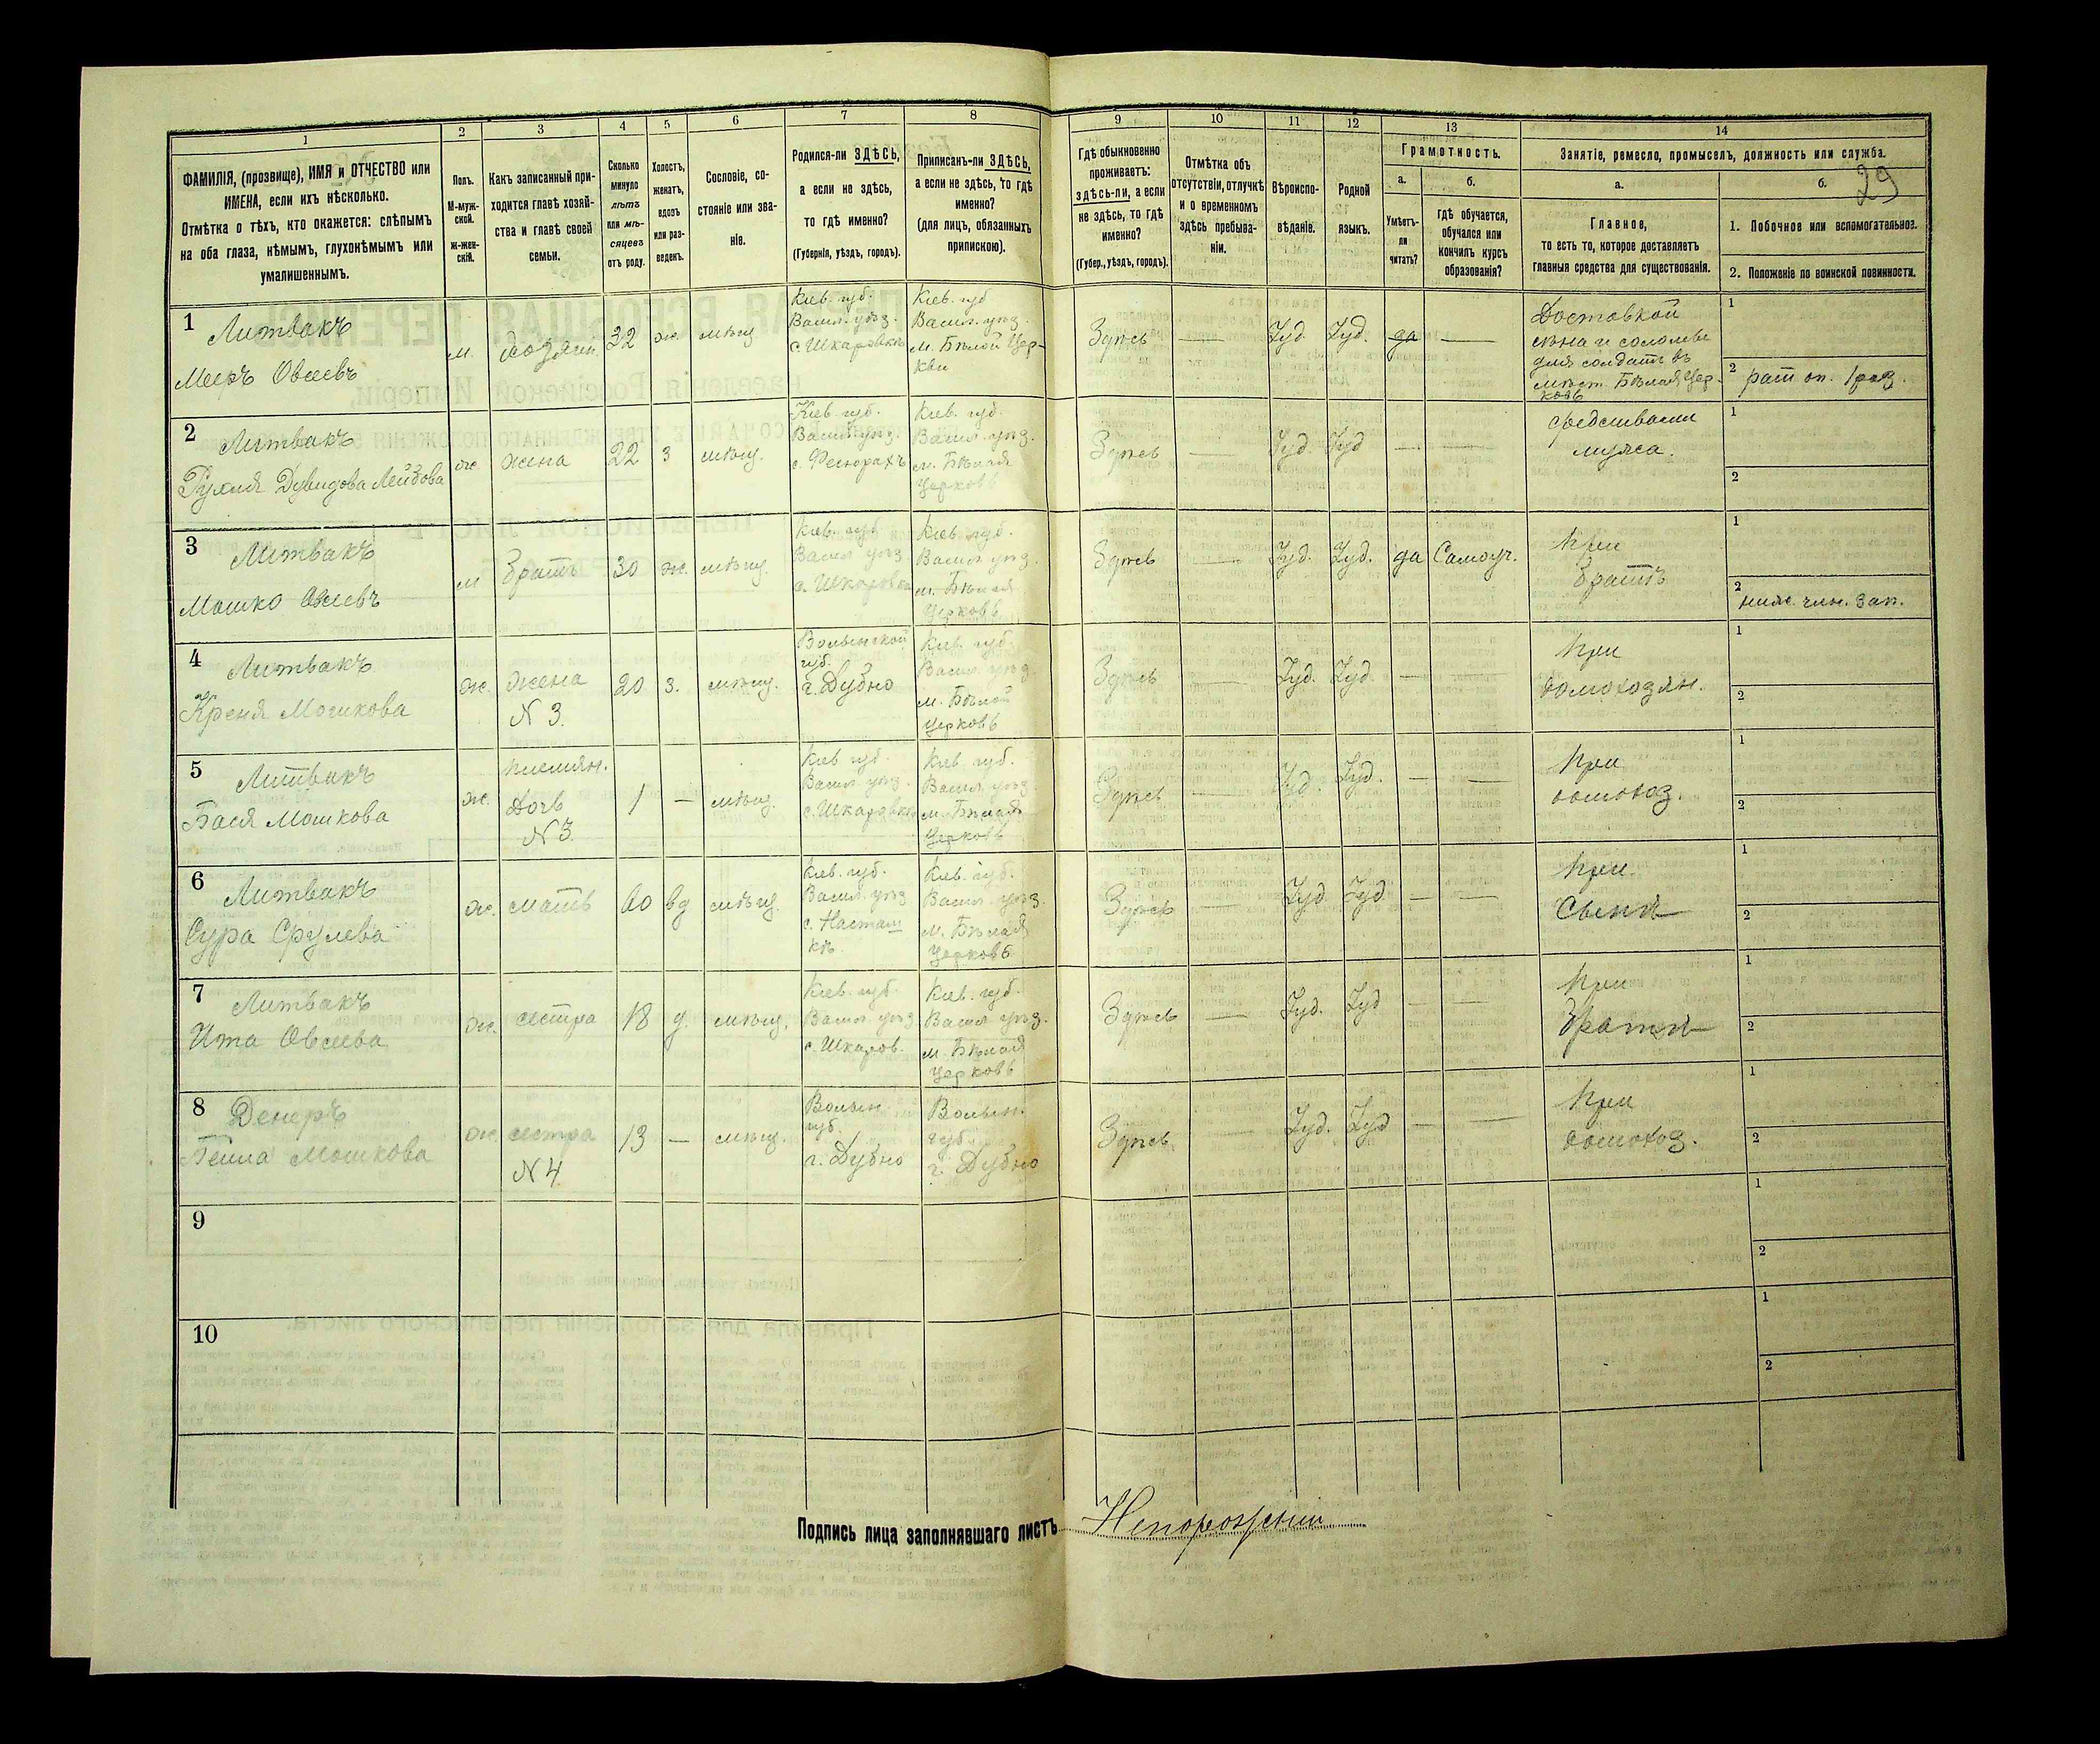 1 2 3 4 5 6 7 8 9 10 11 12 13 14
ФАМИЛІЯ, (прозвище), ИМЯ и ОТЧЕСТВО или
ИМЕНА, если ихъ нѣсколько.
Отмѣтка о тѣхъ, кто окажется: слѣпымъ
на оба глаза, нѣмымъ, глухонѣмымъ или
умалишеннымъ.
Полъ.
М-муж-
ской.
ж-жен-
скій.
Какъ записанный при-
ходится главѣ хозяй-
ства и главѣ своей
семьи.
Сколько
минуло
лѣтъ
или мѣ-
сяцевъ
отъ роду.
Холостъ,
женатъ,
вдовъ
или раз-
веденъ.
Сословіе, со-
стояніе или зва-
ніе.
Родился-ли ЗДѢСЬ,
а если не здѣсь,
то гдѣ именно?
(Губернія, уѣздъ, городъ).
Приписанъ-ли ЗДѢСЬ,
а если не здѣсь, то гдѣ
именно?
(для лицъ, обязанныхъ
припискою).
Гдѣ обыкновенно
проживаетъ:
здѣсь-ли, а если
не здѣсь, то гдѣ
именно?
(Губер., уѣздъ, городъ).
Отмѣтка объ
отсутствіи, отлучкѣ
и о временномъ
здѣсь пребыва-
ніи.
Вѣроиспо-
вѣданіе.
Родной
языкъ.
Грамотность.
а.
Умѣетъ-
ли
читать?
б.
гдѣ обучается,
обучался или
кончилъ курсъ
образованія?
Занятіе, ремесло, промыселъ, должность или служба.
а.
Главное,
то есть то, которое доставляетъ
главныя средства для существованія.
б.
29
1. Побочное или вспомогательное.
2. Положеніе по воинской повинности.
1
Литвакъ
Мееръ Овсеевъ
м.
хозяин.
32
ж.
мѣщ
Кіев. губ.
Васил. уѣз.
с. Шкаровкѣ
Кіев. губ
Васил. уѣз.
м. Бѣлой Цер-
кви
Здѣсь
—
Іуд.
Іуд.
да
—
Доставкой
сѣна и соломы
для солдатъ въ
мѣст. Бѣлая Цер-
ковь
1
2 рат. оп. 1 раз.
2
Литвакъ
Рухля Дувидова Лейбова
ж.
жена
22
з
мѣщ.
Кіев. губ.
Васил. уѣз.
Кіев. губ.
Васил. уѣз.
м. Бѣлая
Церковь
Здѣсь
—
Іуд.
Іуд
—
—
средствами
мужа.
1
2
3
Литвакъ
Мошко Овсеевъ
м
братъ
30
ж.
мѣщ.
Кіев. губ
Васил. уѣз
с. Шкаровка
Кіев. губ.
Васил. уѣз.
м. Бѣлая
Церковь
Здѣсь
—
Іуд.
Іуд.
да
Самоуч.
при
братѣ
1
2 ниж. чин. зап.
4
Литвакъ
Креня Мошкова
ж.
жена
N 3.
20
з.
мѣщ.
Волынской
губ.
г. Дубно
Кіев. губ.
Васил. уѣз.
м. Бѣлой
Церковь
Здѣсь
—
Іуд.
Іуд.
—
—
при
домохозян.
1
2
5
Литвакъ
Бася Мошкова
ж.
племян.
Дочь
N 3.
1
—
мѣщ.
Кіев. губ.
Васил. уѣз.
с. Шкаровкѣ
Кіев. губ.
Васил. уѣз.
м. Бѣлая
Церковь
Здѣсь
—
Іуд.
Іуд.
—
—
при
домохоз.
1
2
6
Литвакъ
Сура Срулева
ж.
мать
60
вд
мѣщ.
Кіев. губ.
Васил. уѣз
с. Насташ
кѣ.
Кіев. губ.
Васил. уѣз.
м. Бѣлая
Церковь
Здѣсь
—
Іуд
Іуд
—
—
при
сынѣ
1
2
7
Литвакъ
Ита Овсеева
ж.
сестра
18
д.
мѣщ.
Кіев. губ.
Васил. уѣз.
с. Шкаров.
Кіев. губ.
Васил. уѣз.
м. Бѣлая
Церковь
Здѣсь
—
Іуд.
Іуд
—
—
при
братѣ
1
2
8
Денеръ
Мошкова
ж.
сестра
N 4
13
—
мѣщ.
Волын
губ.
г. Дубно
Волын.
губ.
г. Дубно
Здѣсь
—
Іуд.
Іуд
—
—
при
домохоз.
1
2
9
1
2
10
1
2
Подпись лица заполнявшаго листъ